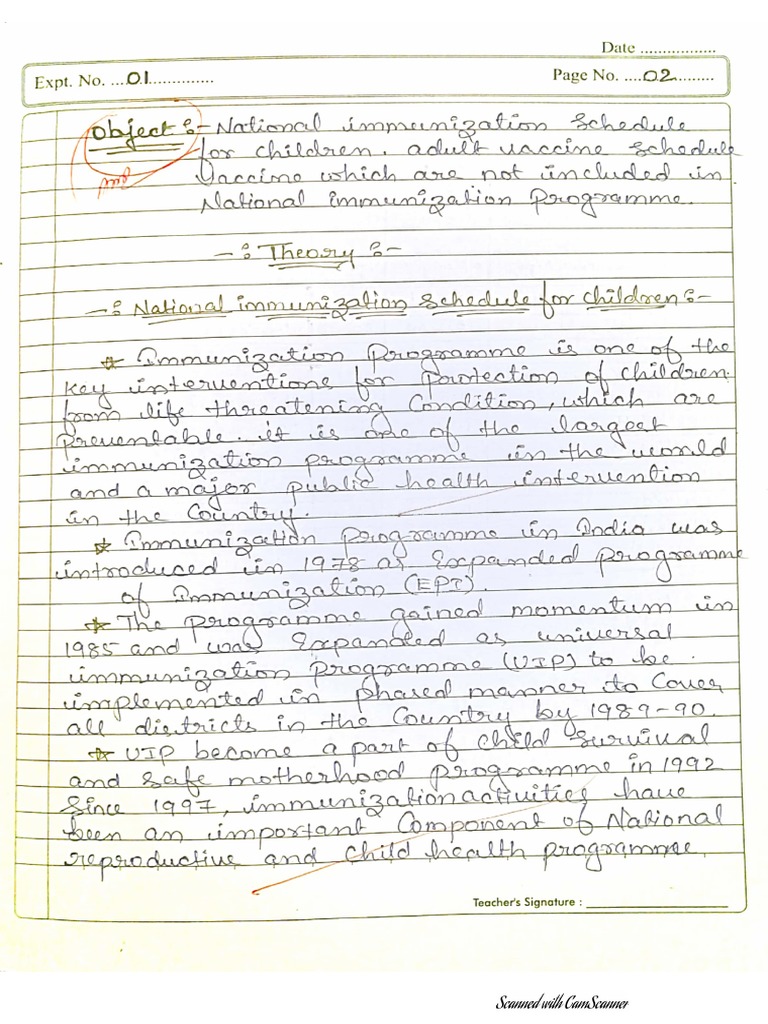 Date .................
Expt. No. ...01..............
Page No. ....02........
Object :- National immunization schedule
for children. adult vaccine schedule
Vaccine which are not included in
National immunization Programme.
-: Theory :-
-: National immunization schedule for children :-
☆ Immunization Programme is one of the
key interventions for protection of children
from life threatening Condition, which are
preventable. it is one of the largest
immunization programme in the world
and a major public health intervention
in the Country.
☆ Immunization Programme in India was
introduced in 1978 as Expanded programme
of Immunization (EPI).
☆ The programme gained momentum in
1985 and was Expanded as universal
immunization programme (UIP) to be
implemented in phased manner to Cover
all districts in the Country by 1989-90.
☆ UIP become a part of child survival
and safe motherhood programme in 1992
Since 1997, immunization activities have
been an important Component of National
reproductive and child health programme.
Teacher's Signature : ____________________
Scanned with CamScanner